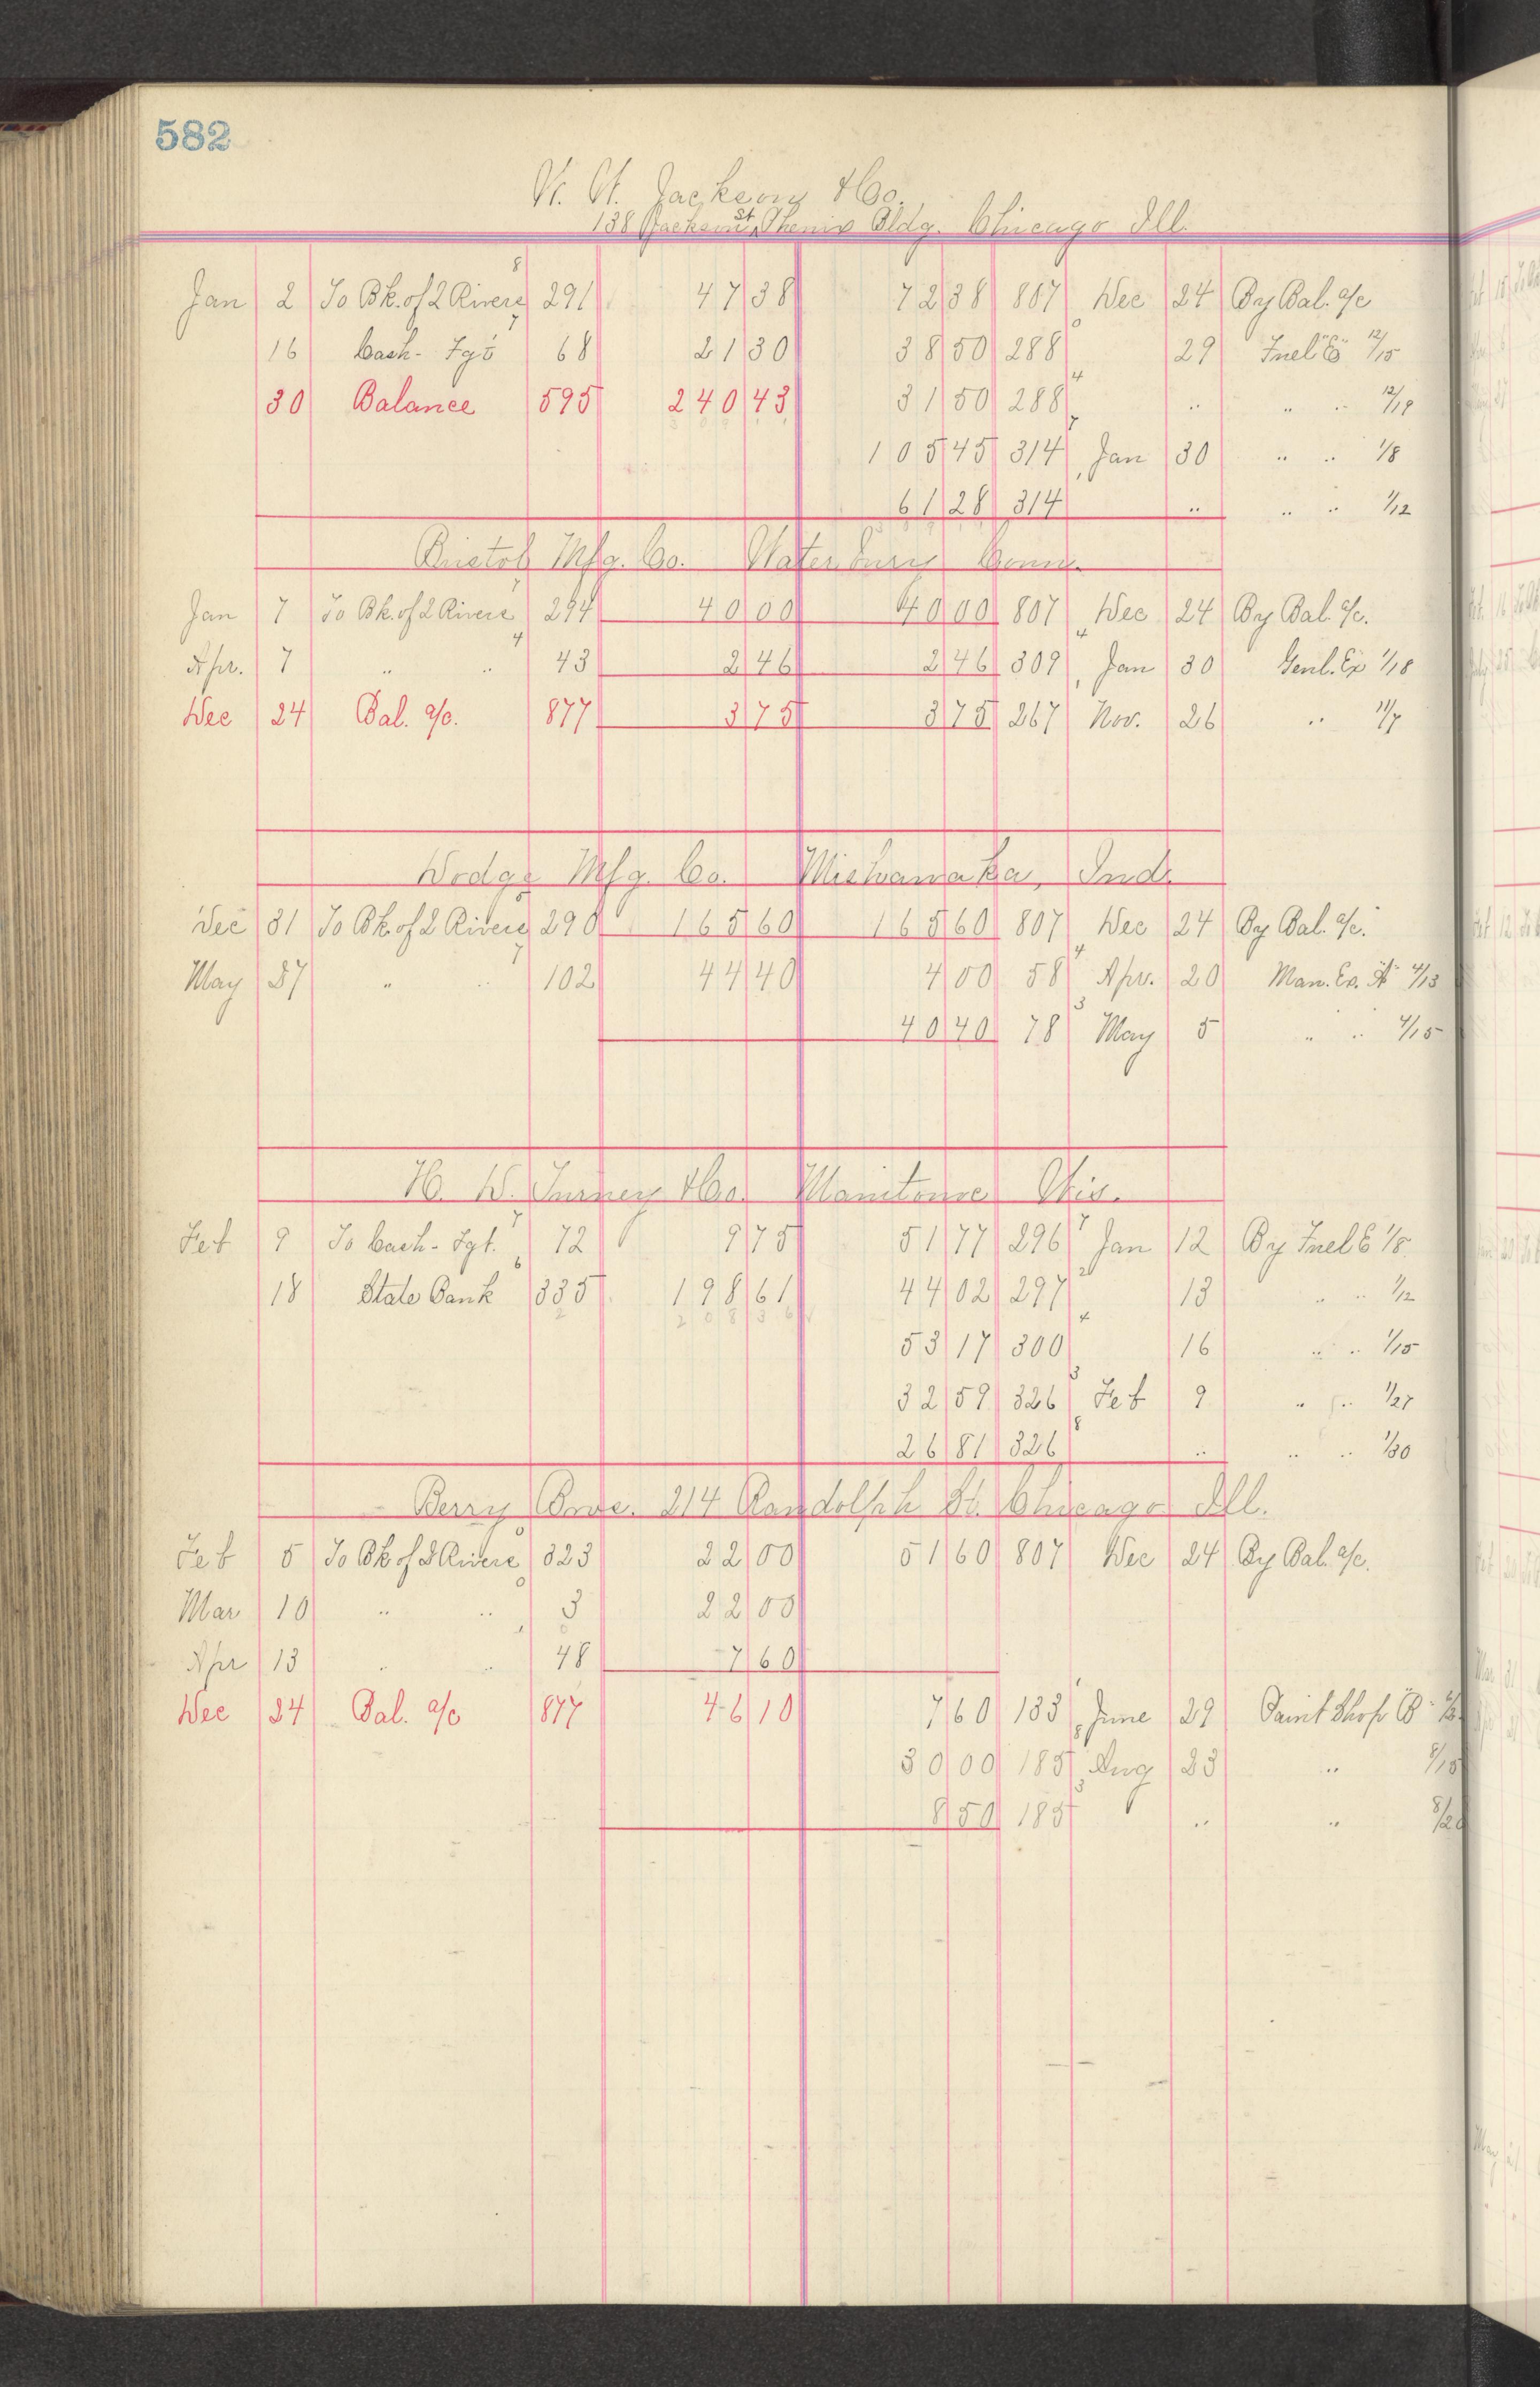 582
W. A. Jackson & Co.
138 Jackson St. Phenix Bldg. Chicago Ill.
8
Jan 2 To Bk. of 2 Rivers 291 47 38 72 38 807 Dec 24 By Bal. a/c
7 0
16 Cash - Fgt 68 21 30 38 50 288 29 Fuel "E" 12/15
4
30 Balance 595 240 43 31 50 288 .. " .. 12/19
7
105 45 314 Jan 30 " .. 1/8
61 28 314 .. " .. 1/12
Bristol Mfg. Co. Waterbury Conn.
7
Jan 7 To Bk. of 2 Rivers 294 40 00 40 00 807 Dec 24 By Bal. a/c.
4 4
Apr. 7 " .. 43 2 46 2 46 309 Jan 30 Genl. Ex 1/18
Dec 24 Bal. a/c. 877 3 75 3 75 267 Nov. 26 " 11/7
Dodge Mfg. Co. Mishawaka, Ind.
Dec 31 To Bk. of 2 Rivers 290 165 60 165 60 807 Dec 24 By Bal. a/c.
7 4
May 27 " .. 102 44 40 4 00 58 Apr. 20 Man. Ex. "A" 4/13
3
40 40 78 May 5 " .. 4/15
H. D. Turney & Co. Manitowoc Wis.
7 7
Feb 9 To Cash - Fgt. 72 9 75 51 77 296 Jan 12 By Fuel E 1/8
6 2
18 State Bank 335 198 61 44 02 297 13 " .. 1/12
2 208 36 4
53 17 300 16 " .. 1/15
3
32 59 326 Feb 9 " .. 1/27
8
26 81 326 .. " .. 1/30
Berry Bros. 214 Randolph St. Chicago Ill.
0
Feb 5 To Bk of 2 Rivers 323 22 00 51 60 807 Dec 24 By Bal. a/c.
0
Mar 10 " .. 3 22 00
Apr 13 " .. 48 7 60
Dec 24 Bal. a/c 877 46 10 7 60 133 June 29 Paint Shop "B"
8
30 00 185 Aug 23 " 8/15
3
8 50 185 .. " 8/20